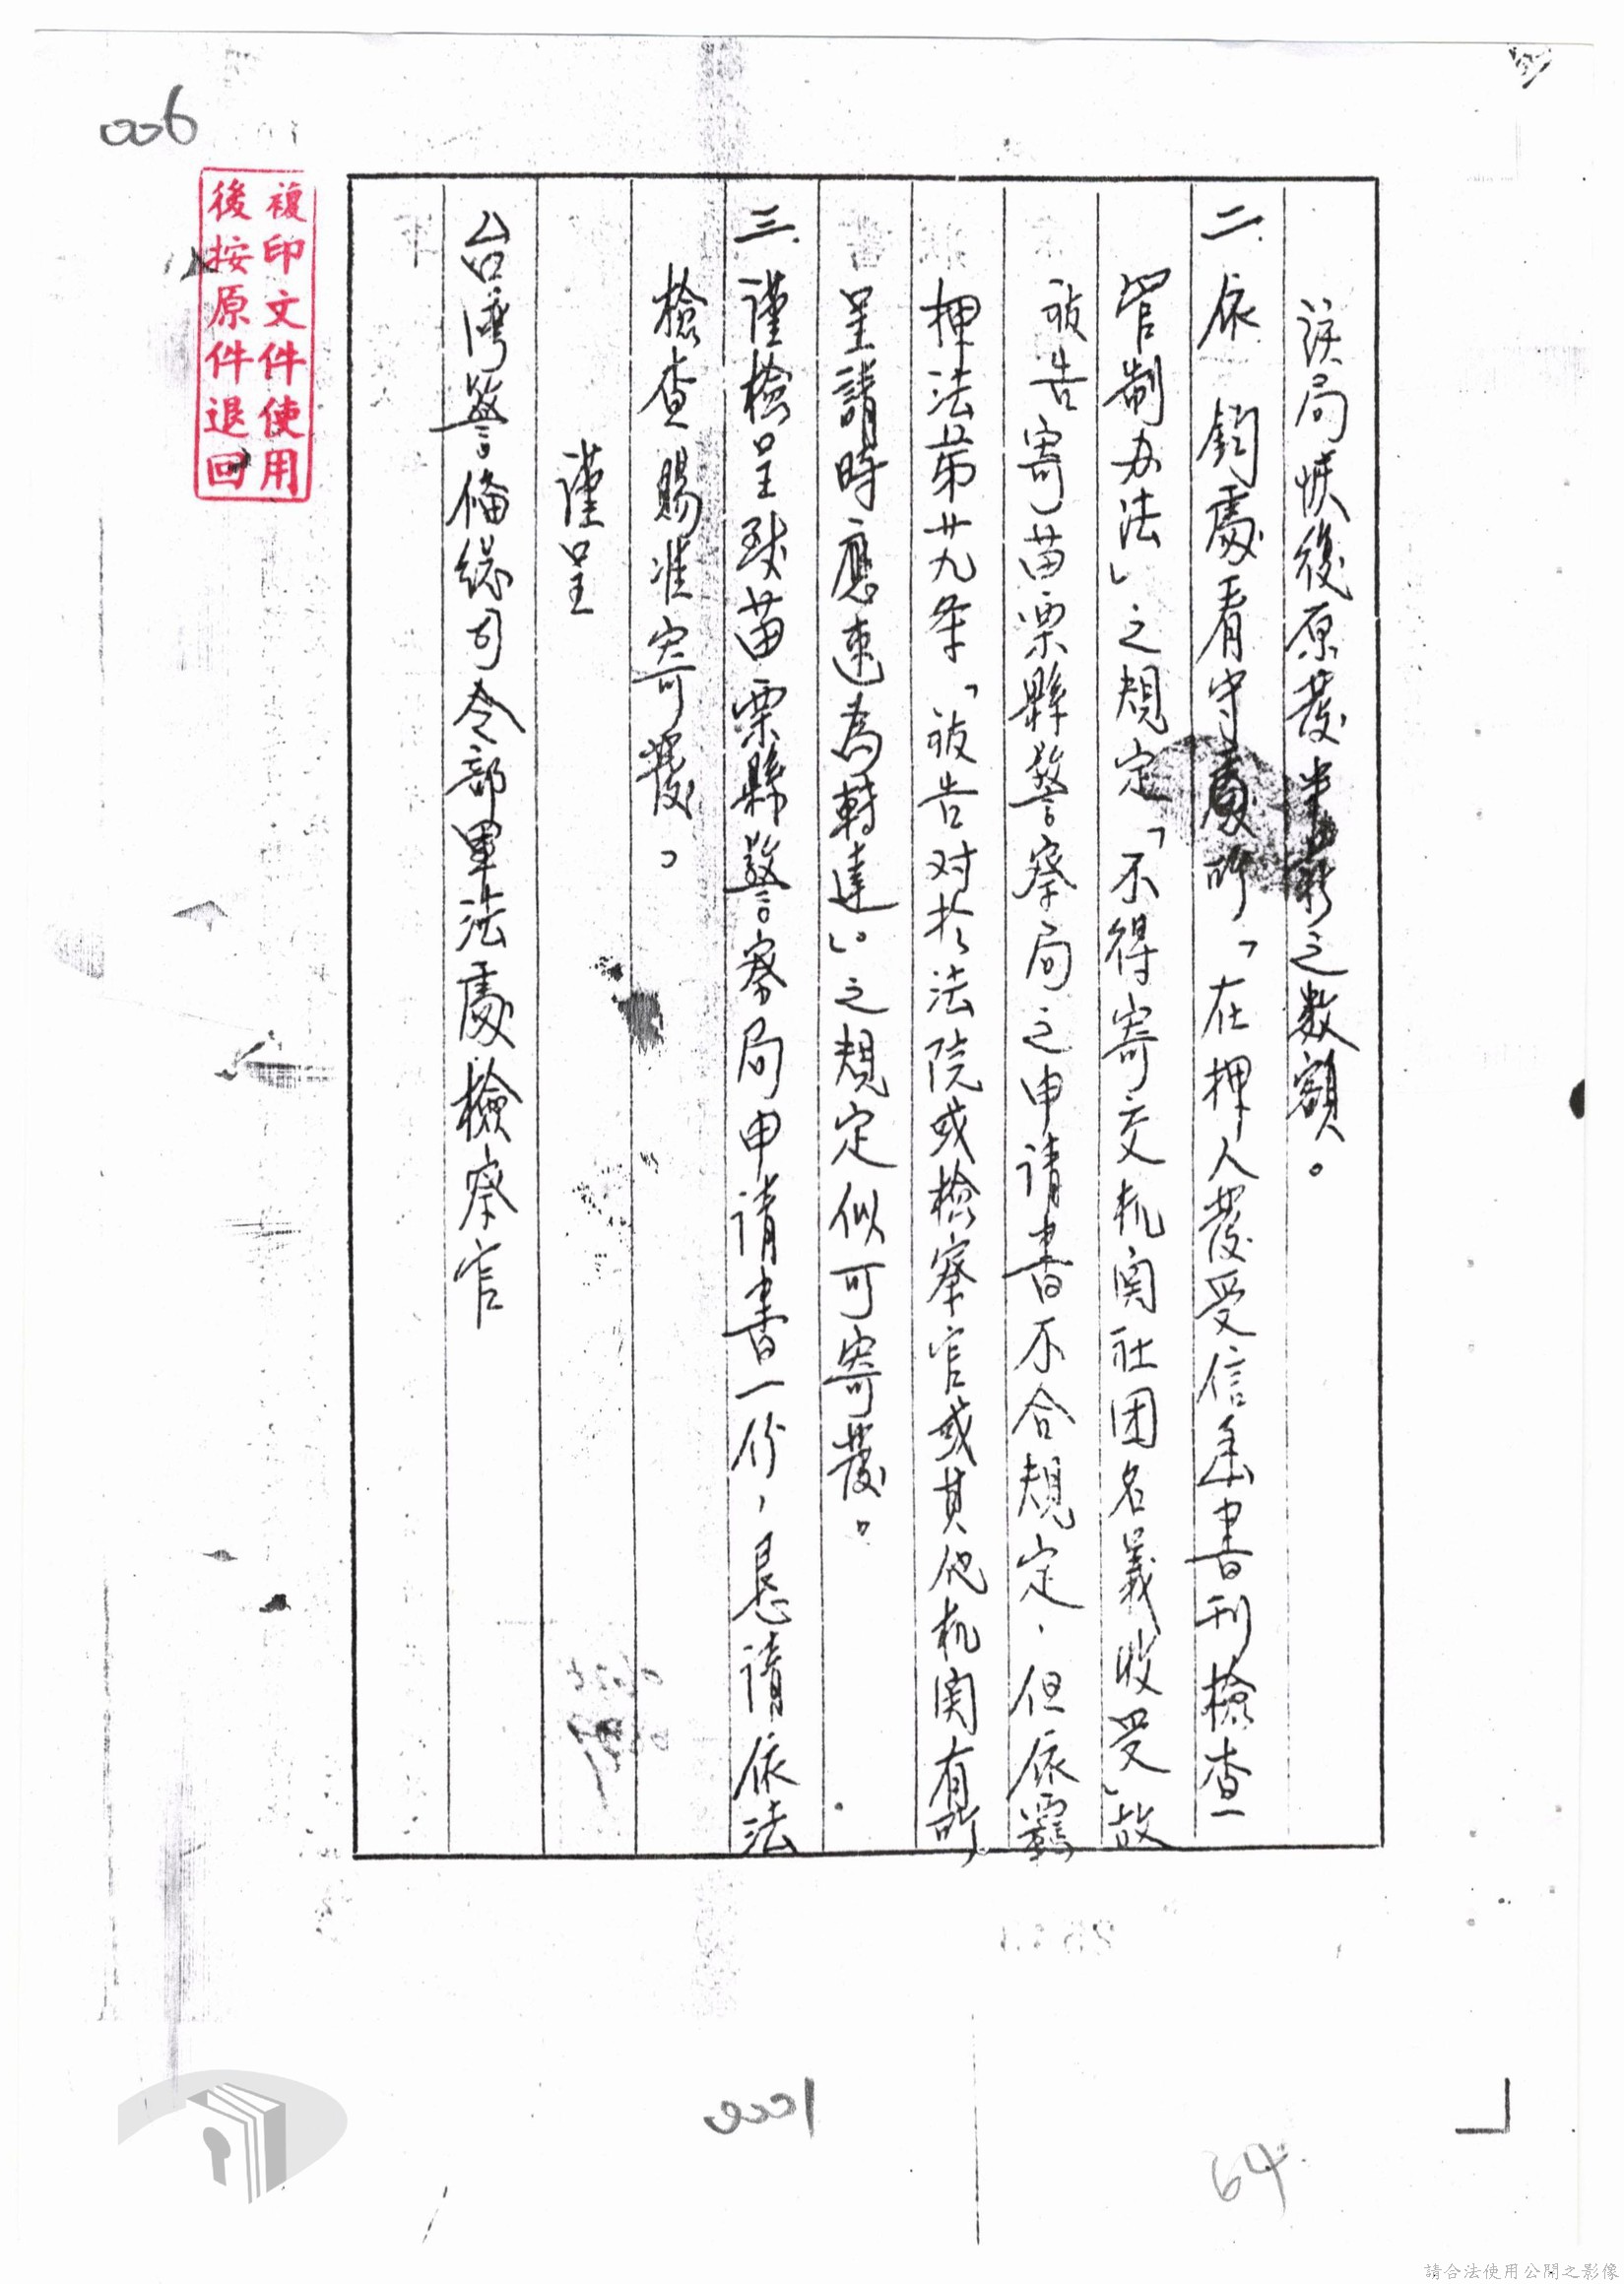 006
複印文件使用
後按原件退回
該局恢復原發半薪之数額。
二.依 鈞處看守處所「在押人發受信集書刊檢查
管制办法」之規定「不得寄交机関社团名義收受」故
被告寄苗栗縣警察局之申请書不合規定,但依羈
押法第廿九条「被告对於法院或檢察官或其他机関有所
呈請時應速為轉達」。之規定似可寄發。
三.谨檢呈致苗栗縣警察局申请書一份,恳请依法
檢查賜准寄發。
谨呈
台湾警备总司令部軍法處檢察官
64
請合法使用公開之影像